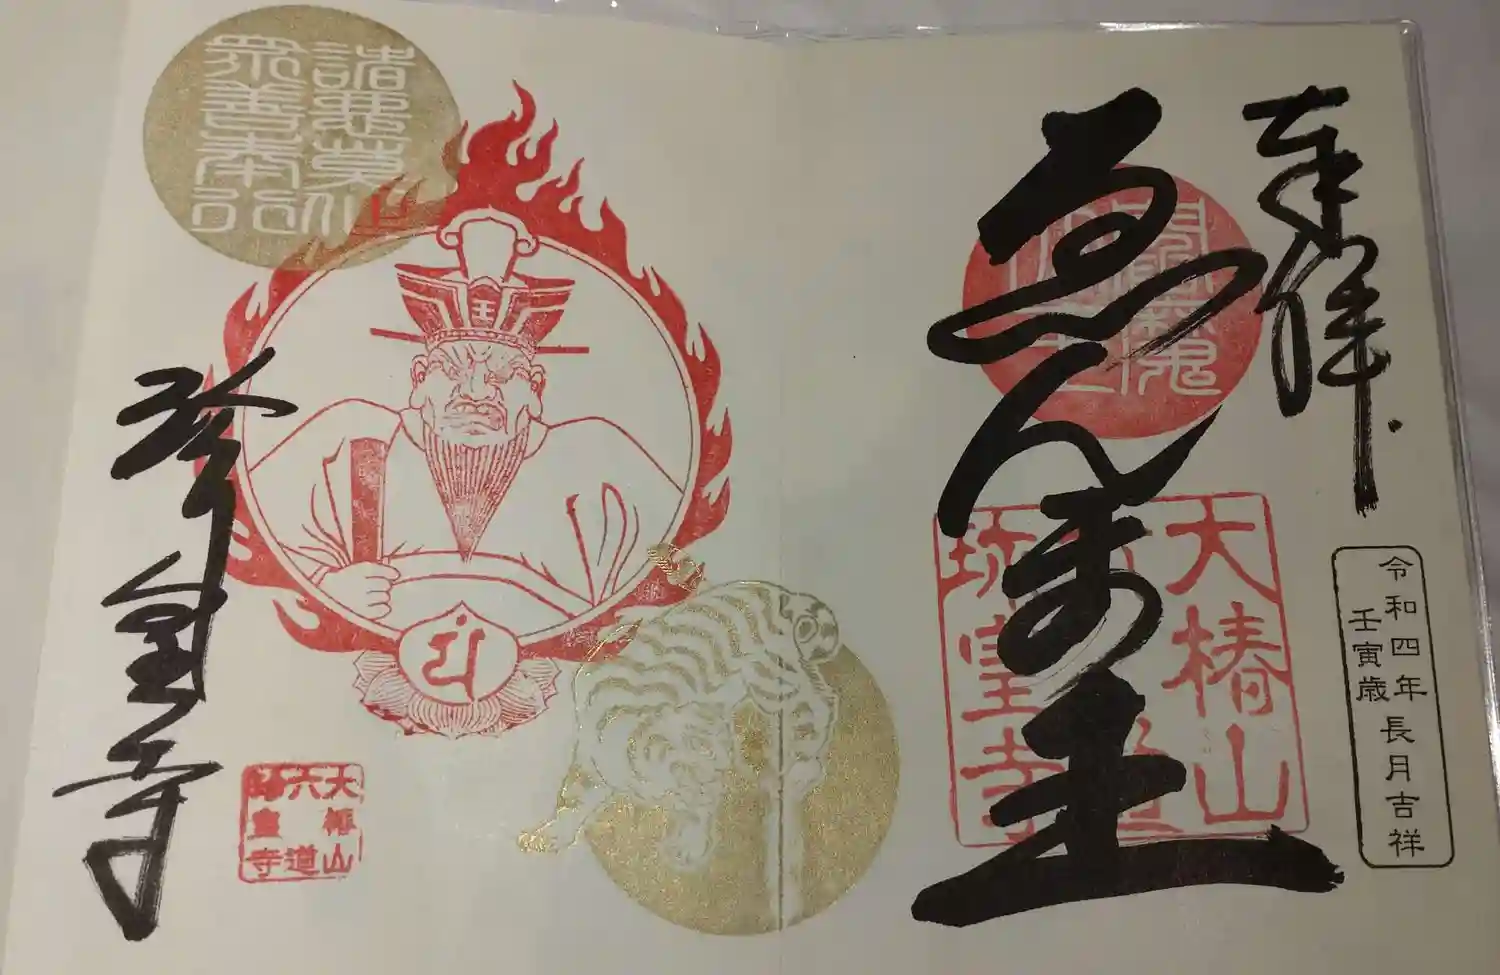 奉拝
ゑんま王
閻魔
大椿山
六道
珍皇寺
令和四年長月吉祥
壬寅歳
諸悪莫作
衆善奉行
王
珍皇寺
大椿山
六道
珍皇寺